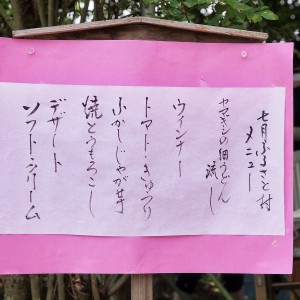 七月ふるさと村
メニュー
カマキシの細うどん
流し
ウィンナー
トマト・きゅうり
ふかしじゃが芋
焼とうもろこし
デザート
ソフトクリーム